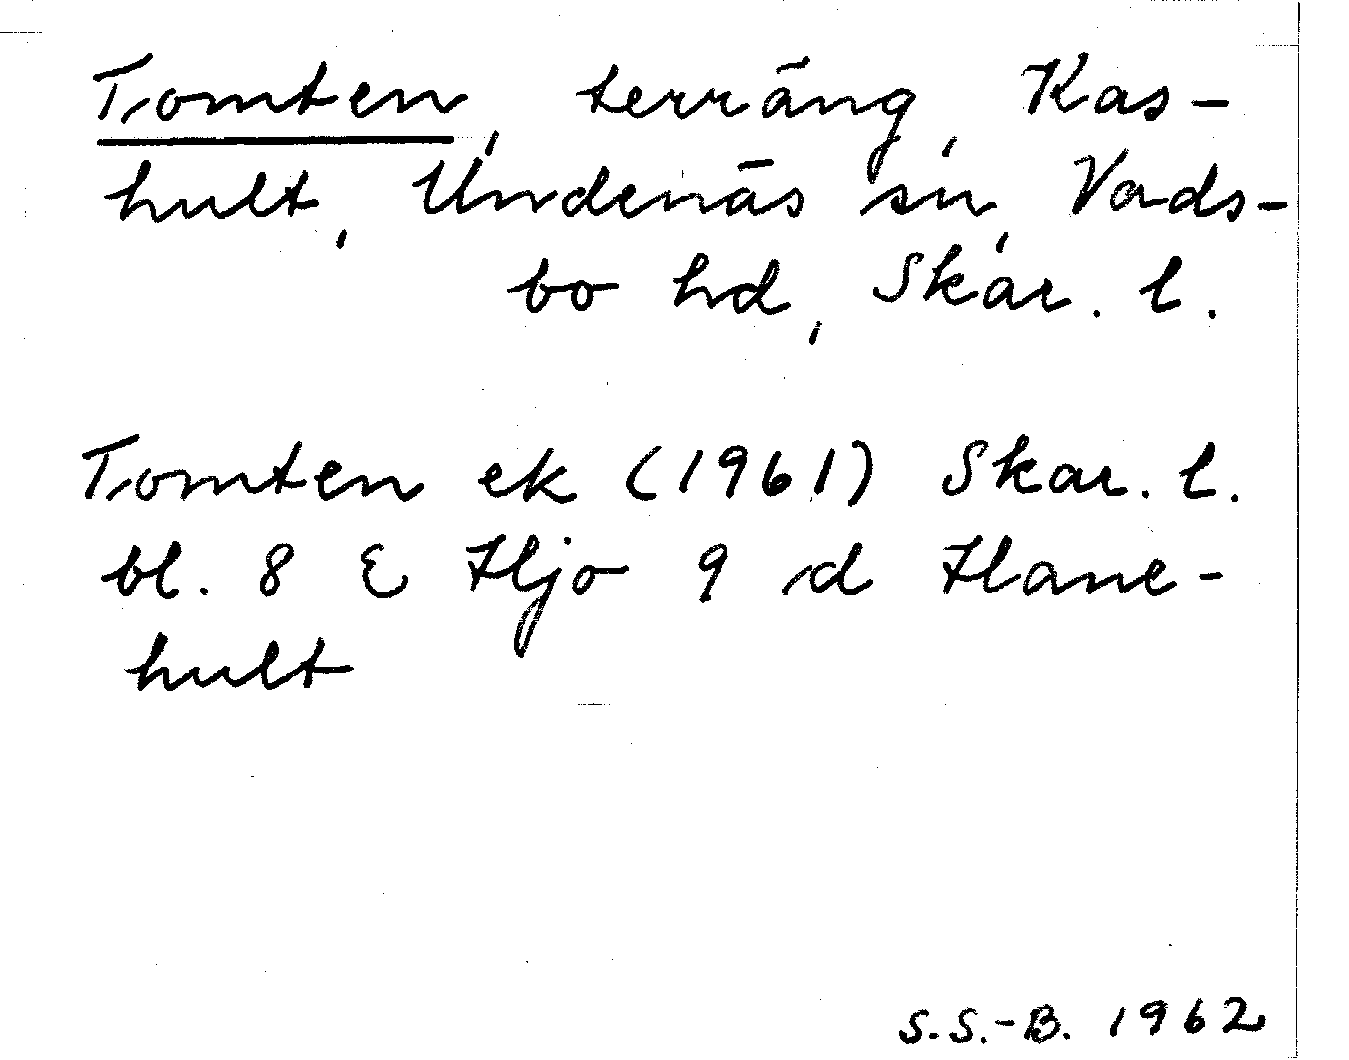 Tomten, terräng, Kas-
hult, Undenäs sn, Vads-
bo hd, Skar. l.
Tomten ek (1961) Skar. l.
bl. 8 E Hjo 9 d Hane-
hult
S.S.-B. 1962